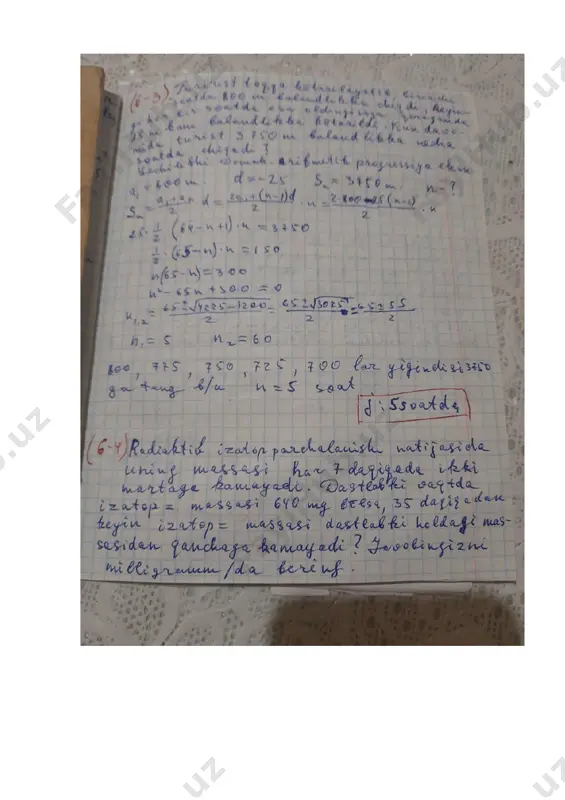 (6-3) Turist toqqa kotarilayatib, birinchi
soatda 800 m balandlikka chiqdi, keyingi
har bir soatda esa oldingisiga qaraganda
25 m kam balandlikka kotarildi. Nuqtada
turist 3750 m balandlikka necha
soatda chiqadi?
Yechilishi arifmetik progressiya
a₁ = 800 m. d = -25 Sₙ = 3750 m. n - ?
Sₙ = (a₁+aₙ)/2 d = (2a₁+(n-1)d)/2 · n = (2·800-25(n-1))/2 · n
25 · 1/2 (64-n+1)·n = 3750
1/2 · (65-n)·n = 150
n(65-n) = 300
n² - 65n + 300 = 0
n₁,₂ = (65±√4225-1200)/2 = (65±√3025)/2 = (65±55)/2
n₁ = 5 n₂ = 60
800, 775, 750, 725, 700 lar yigindisi 3750
ga teng b/u n = 5 soat
j: 5 soatda
(6-4) Radiaktib izatop parchalanish natijasida
uning massasi har 7 daqiqada ikki
martaga kamayadi. Dastlabki vaqtda
izatop= massasi 640 mg bo'lsa, 35 daqiqadan
keyin izatop= massasi dastlabki holdagi mas-
sasidan qanchaga kamayadi? Javobingizni
milligramm/da bering.
uz
uz
uz